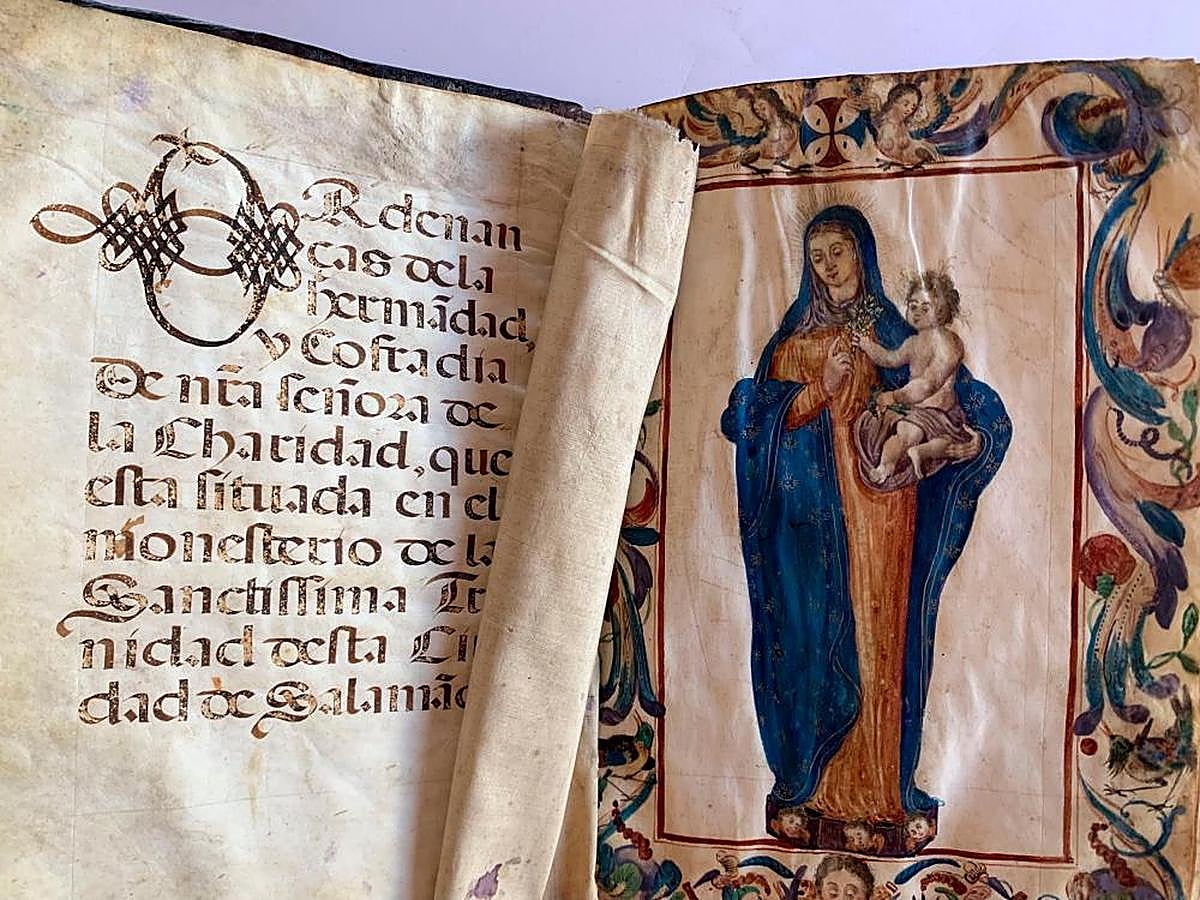 ORdenan
cas dela
hermãdad,
y Cofradia
De nr̃a señora de
la Charidad, que
esta situada en el
monesterio de la
Sanctissima Tr
nidad desta Ci
dad de Salamãc